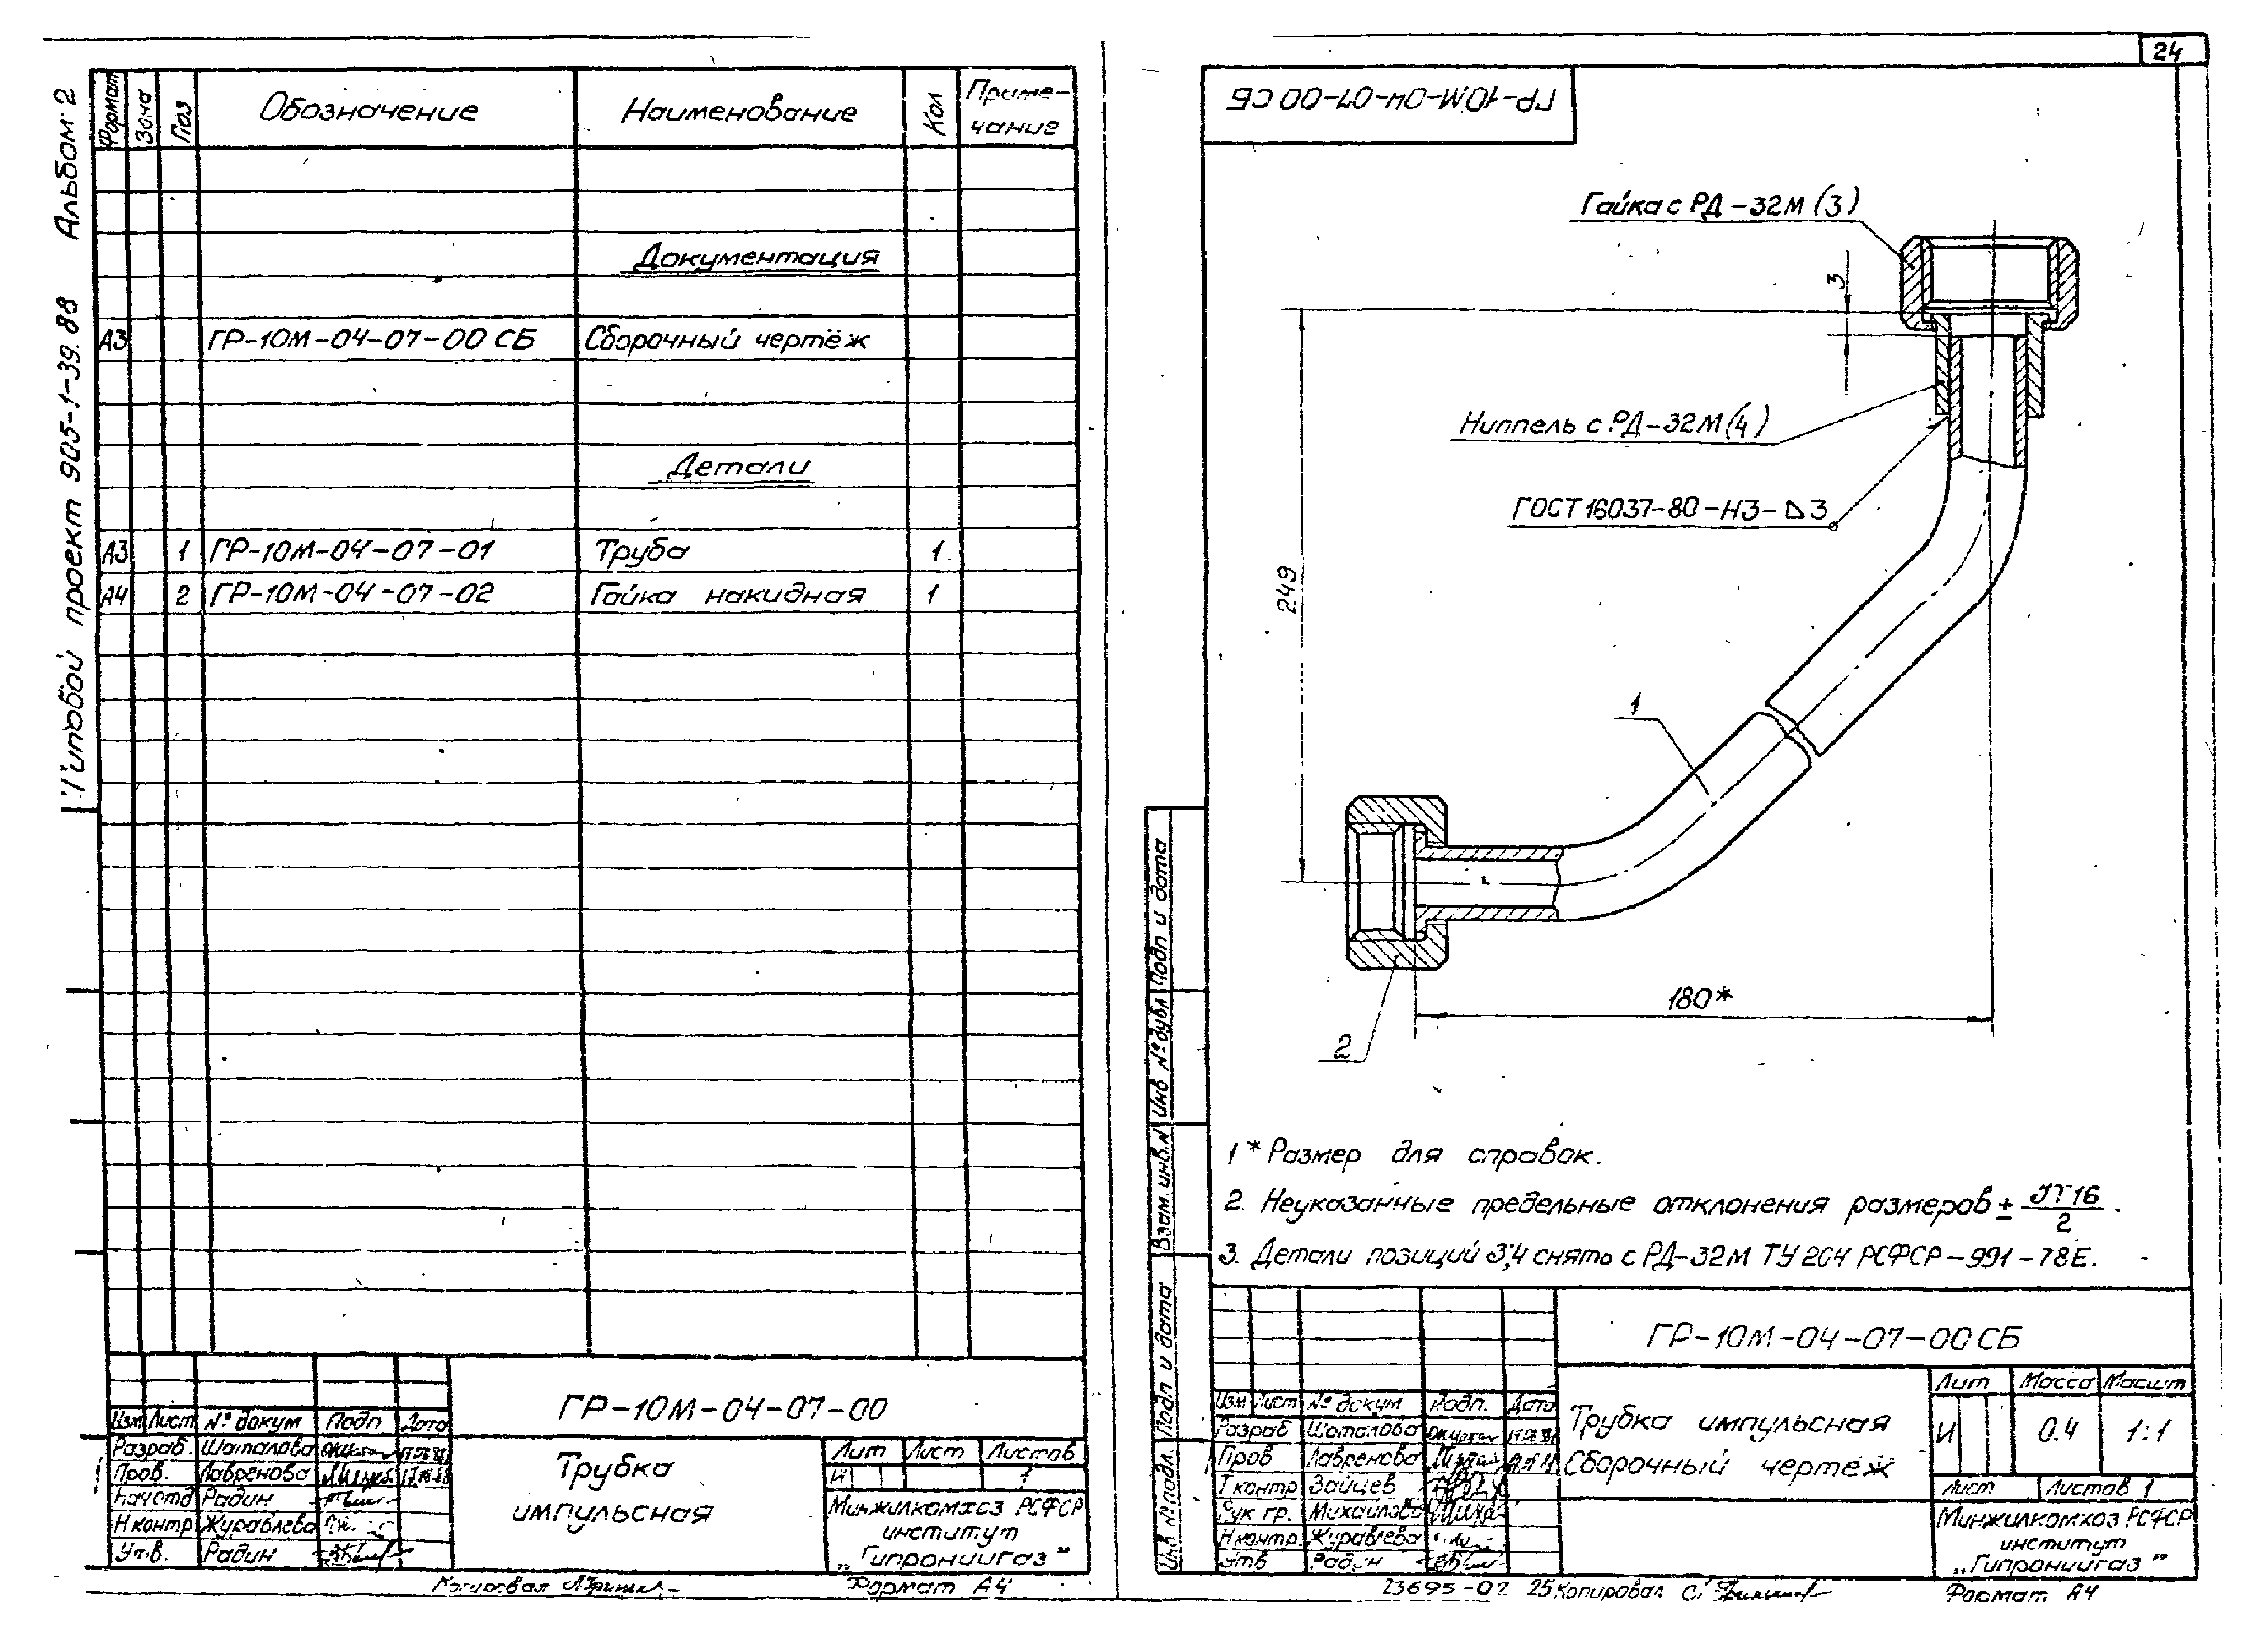 Альбом 2
Типовой проект 905-1-39.88
Формат Зона Поз Обозначение Наименование Кол Приме-
чание
Документация
А3 ГР-10М-04-07-00 СБ Сборочный чертёж
Детали
А3 1 ГР-10М-04-07-01 Труба 1
А4 2 ГР-10М-04-07-02 Гайка накидная 1
ГР-10М-04-07-00
Изм Лист № докум Подп. Дата
Разраб. Шаталова
Пров. Лавренова
Нач отд Радин
Н контр Журавлева
Утв. Радин
Трубка
импульсная
Лит Лист Листов
И 1
Минжилкомхоз РСФСР
институт
„Гипрониигаз"
Копировал
Формат А4
24
ГР-10М-04-07-00 СБ
Гайка с РД-32М (3)
3
Ниппель с РД-32М (4)
ГОСТ 16037-80-Н3-△3
249
1
2
180*
1 * Размер для справок.
2. Неуказанные предельные отклонения размеров ± JT16/2.
3. Детали позиций 3,4 снять с РД-32М ТУ 204 РСФСР-991-78Е.
Инв № подл. Подп и дата Взам. инв.№ Инв № дубл Подп и дата
ГР-10М-04-07-00 СБ
Изм Лист № докум Подп. Дата
Разраб Шаталова
Пров Лавренова
Т контр Зайцев
Рук гр. Михайлова
Н контр. Журавлева
Утв Радин
Трубка импульсная
Сборочный чертёж
Лит Масса Масшт
И 0.4 1:1
Лист Листов 1
Минжилкомхоз РСФСР
институт
„Гипрониигаз"
23695-02 25 Копировал
Формат А4